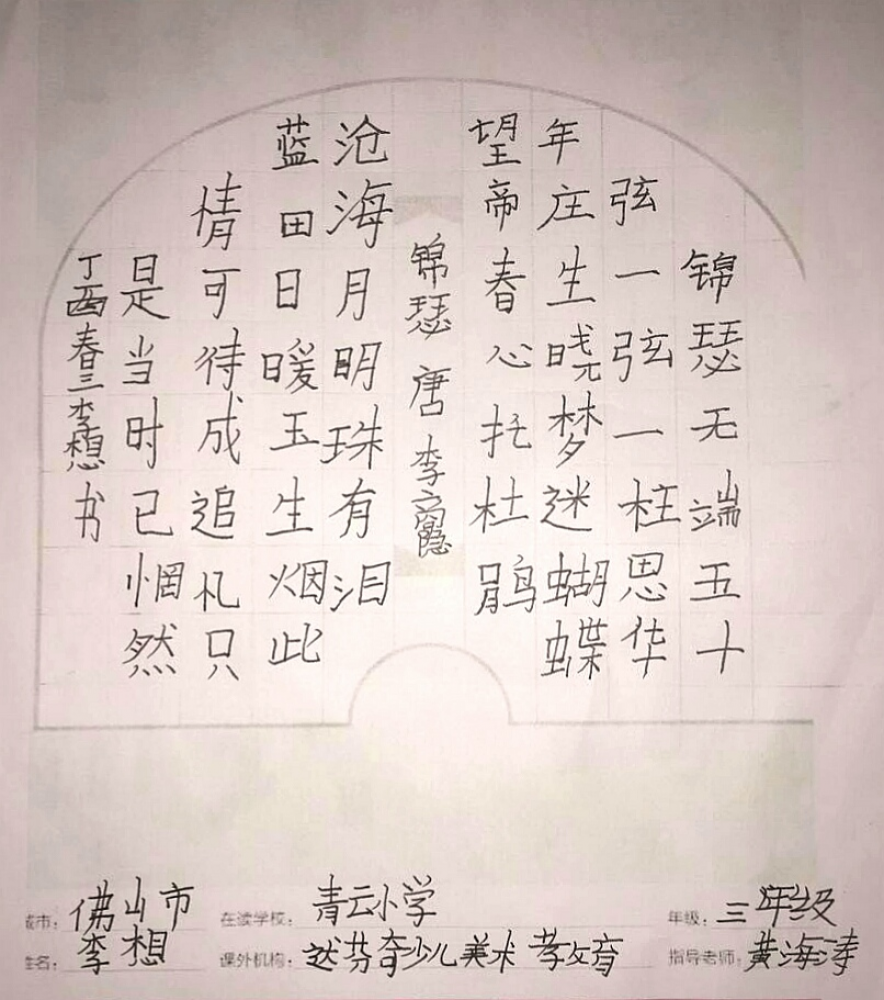 锦瑟无端五十
弦一弦一柱思华
年庄生晓梦迷蝴蝶
望帝春心托杜鹃
锦瑟 唐 李商隐
沧海月明珠有泪
蓝田日暖玉生烟此
情可待成追忆只
是当时已惘然
丁酉春三李想书
城市: 佛山市 在读学校: 青云小学 年级: 三年级
姓名: 李想 课外机构: 达芬奇少儿美术 教育 指导老师: 黄海涛